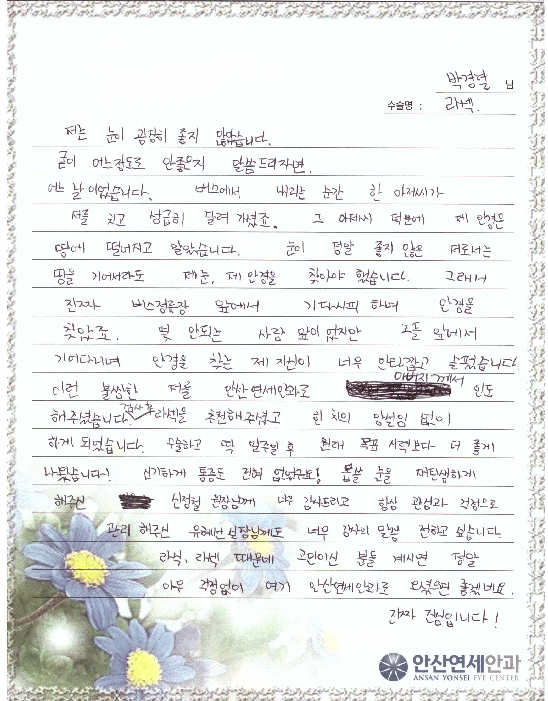 박경열 님
수술명 : 라섹.
저는 눈이 굉장히 좋지 않았습니다.
굳이 어느정도로 안좋은지 말씀드리자면,
어느 날이었습니다. 버스에서 내리는 순간 한 아저씨가
저를 치고 성급히 달려 가셨죠. 그 아저씨 덕분에 제 안경은
땅에 떨어지고 말았습니다. 눈이 정말 좋지 않은 저로서는
땅을 기어서라도 제눈, 제 안경을 찾아야 했습니다. 그래서
진짜 버스정류장 앞에서 기다시피 하며 안경을
찾았죠. 몇 안되는 사람 앞이 없지만 그들 앞에서
기어다니며 안경을 찾는 제 자신이 너무 안타깝고 슬펐습니다.
이런 불쌍한 저를 안산연세안과로 아버지께서 인도
해주셨습니다. 검사 후 라식을 추천해주셨고 한 치의 망설임 없이
하게 되었습니다. 수술하고 딱 일주일 후 원래 목표 시력보다 더 좋게
나왔습니다! 신기하게 통증도 전혀 없었구요! 몹쓸 눈을 재탄생하게
해주신 신정철 원장님께 너무 감사드리고 항상 관심과 걱정으로
관리 해주신 유혜선 실장님께도 너무 감사의 말씀 전하고 싶습니다.
라식, 라섹 때문에 고민이신 분들 계시면 정말
아무 걱정없이 여기 안산연세안과로 오셨으면 좋겠네요.
진짜 진심입니다!
안산연세안과
ANSAN YONSEI EYE CENTER